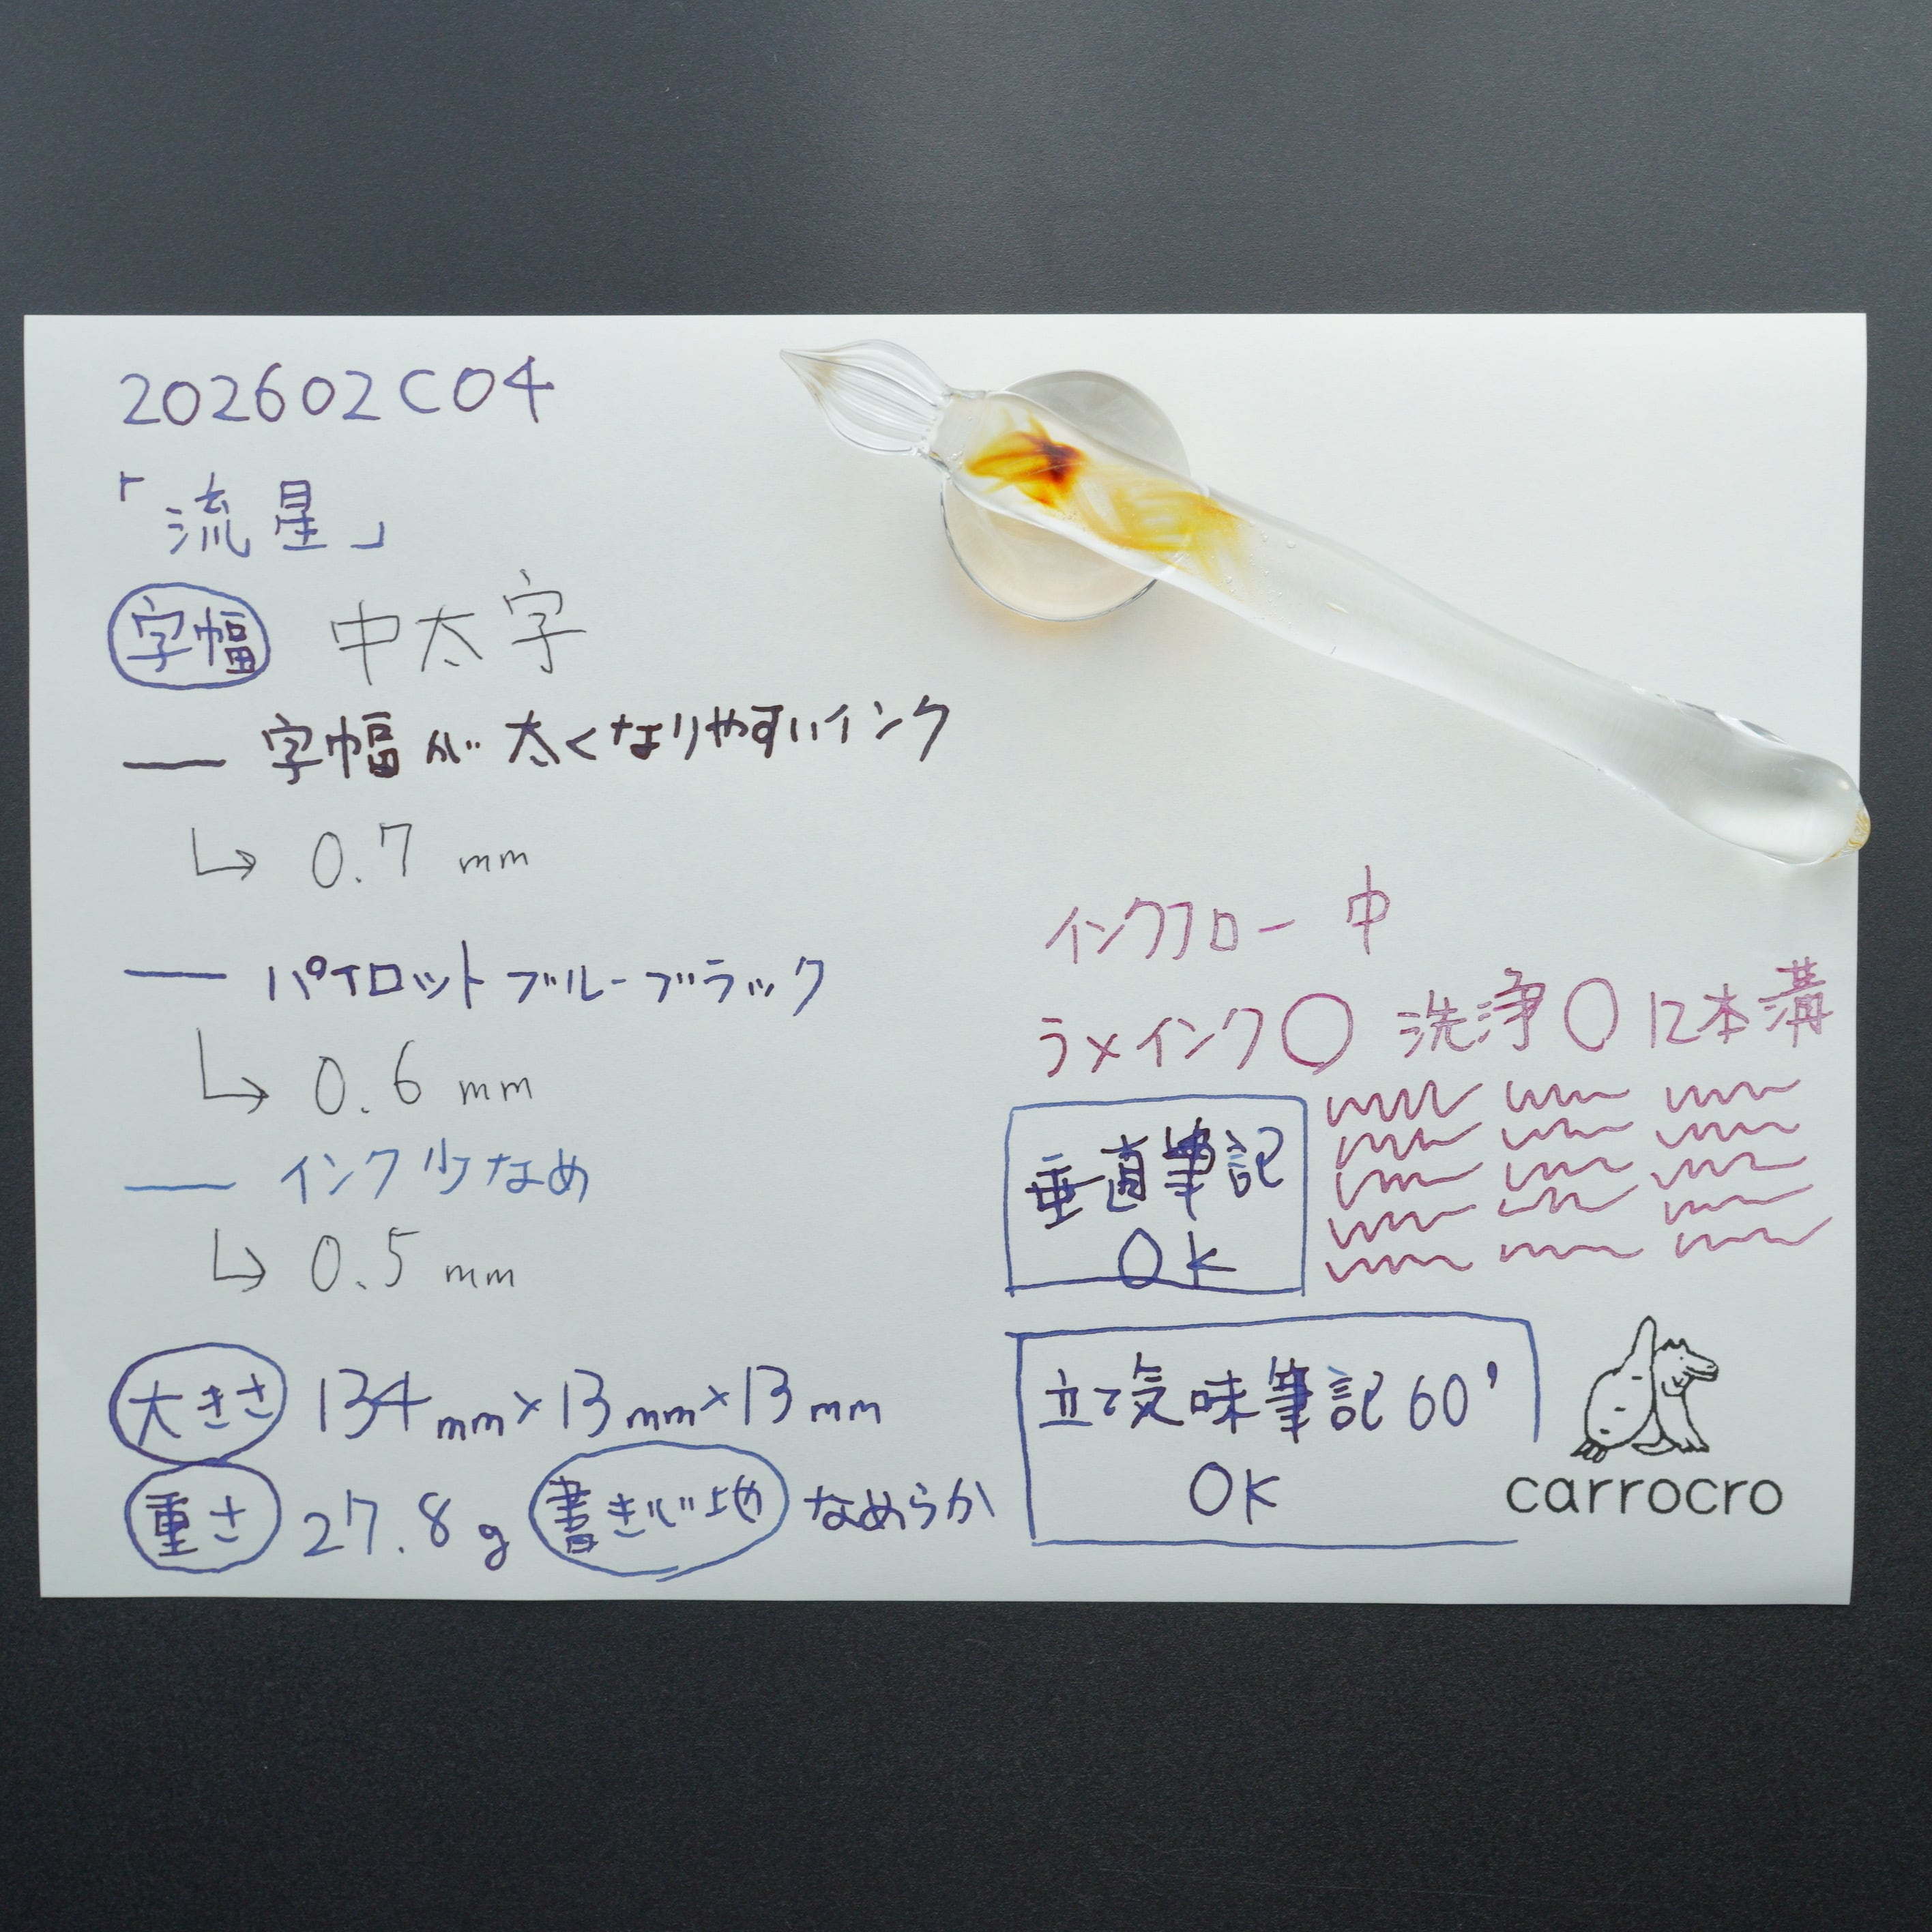 202602C04
「流星」
字幅 中太字
— 字幅が太くなりやすいインク
↳ 0.7 mm
— パイロットブルーブラック
↳ 0.6 mm
— インク少なめ
↳ 0.5 mm
大きさ 134mm×13mm×13mm
重さ 27.8g 書き心地 なめらか
インクフロー 中
ラメインク〇 洗浄〇 12本溝
垂直筆記
OK
立て気味筆記60°
OK
carrocro